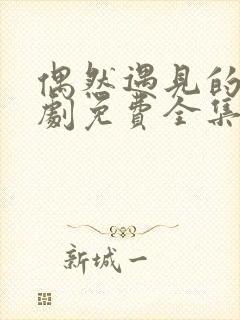 偶然遇見的
劇免費全集
新城一